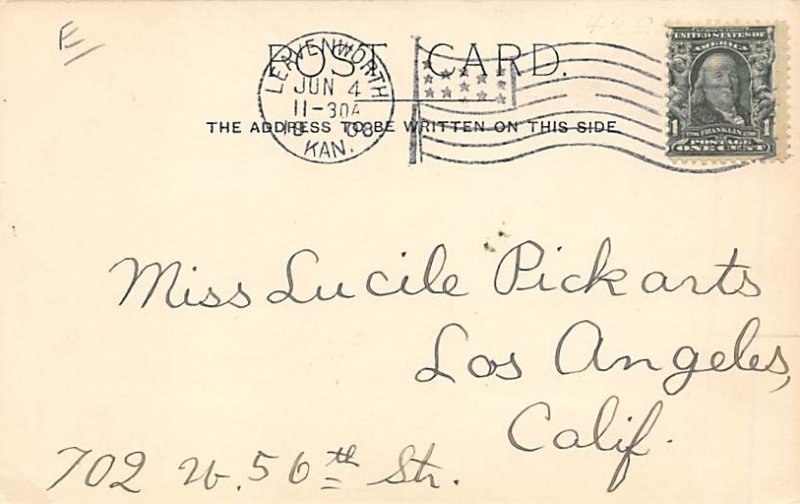 E
POST CARD.
THE ADDRESS TO BE WRITTEN ON THIS SIDE
LEAVENWORTH
JUN 4
11-30A
1908
KAN.
UNITED STATES OF
AMERICA
1 FRANKLIN 1
POSTAGE
ONE CENT
Miss Lucile Pickarts
Los Angeles,
Calif.
702 W. 56th Str.